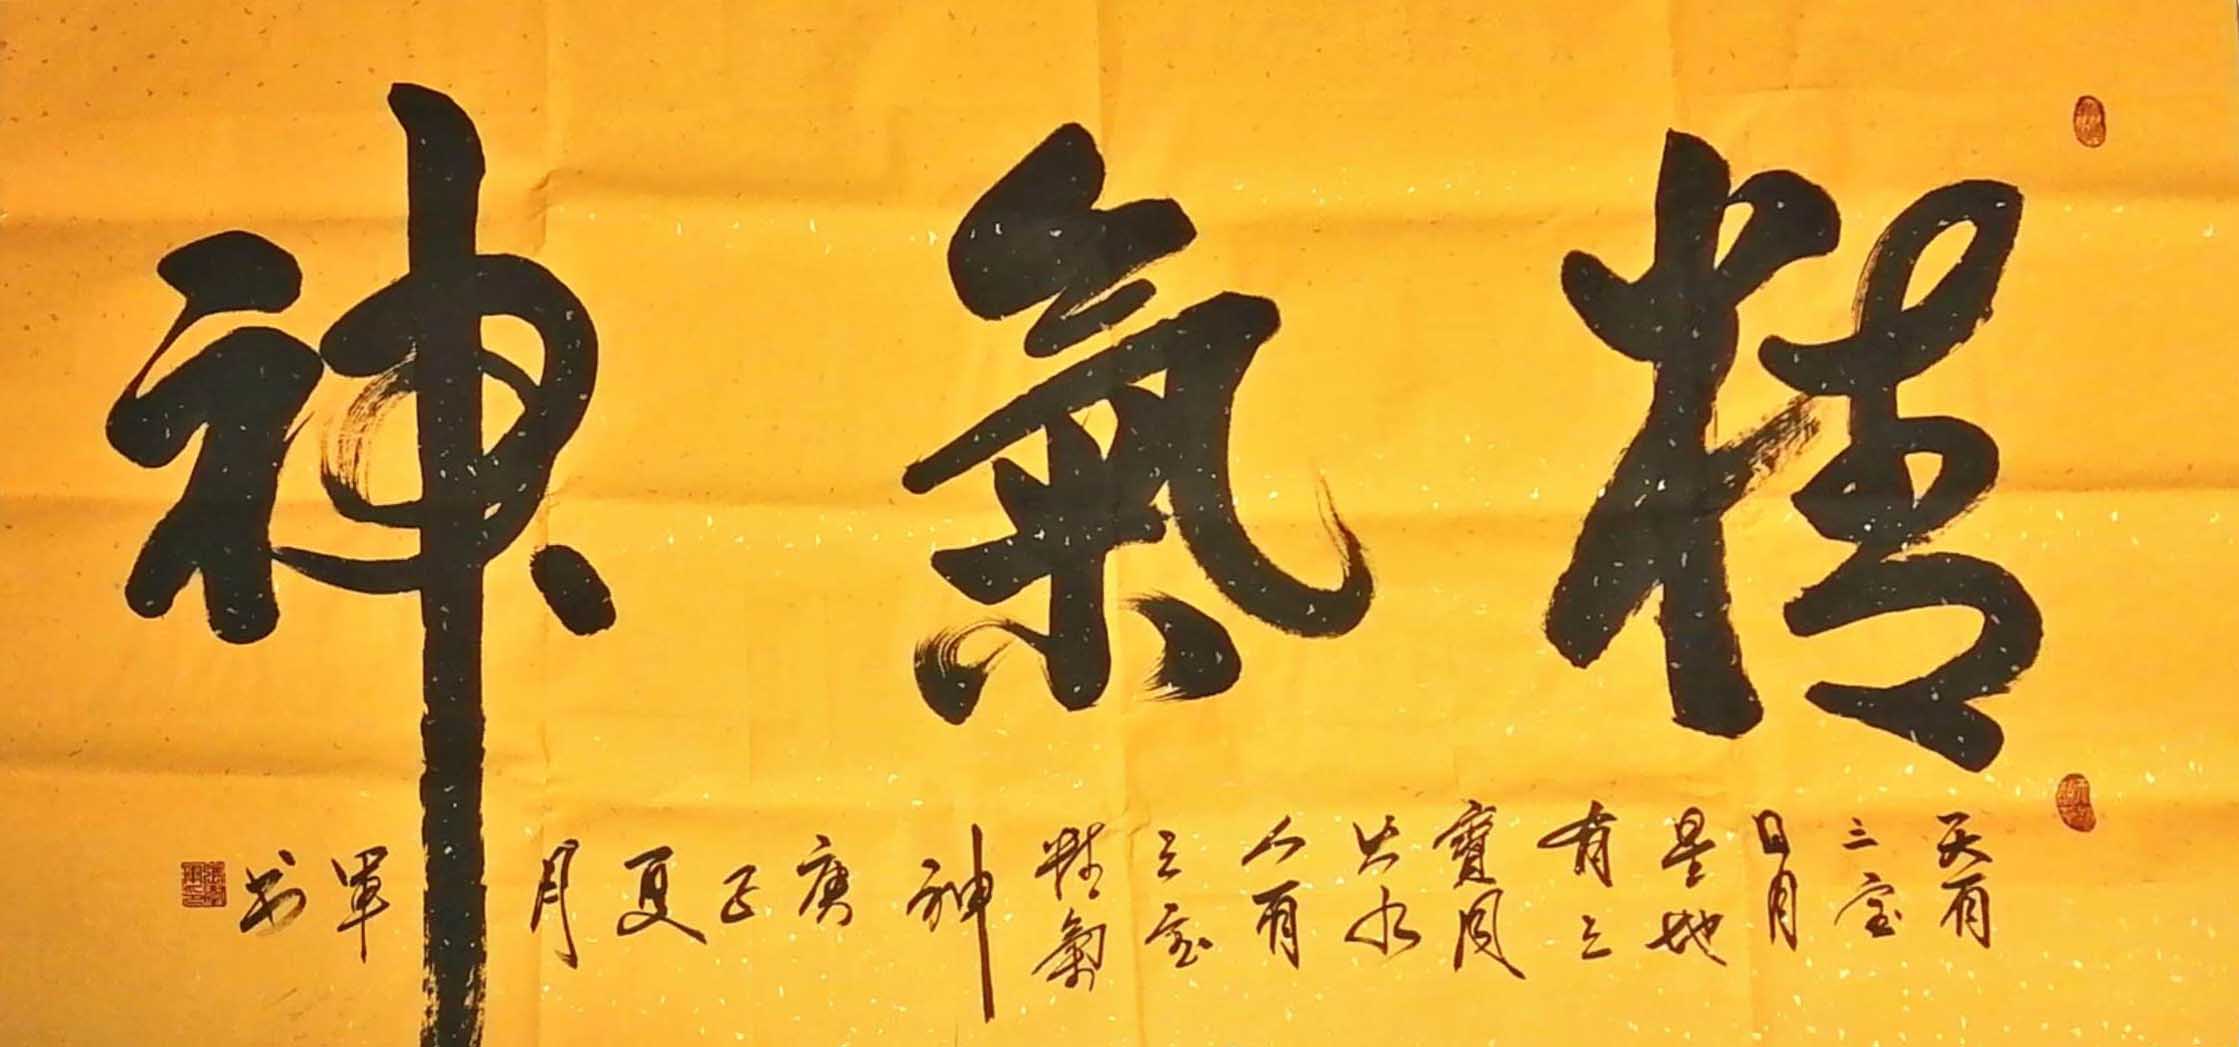 精氣神
天有
三宝
日月
星地
有三
寶風
火水
人有
三宝
精氣
神
庚
子
夏
月
軍
书